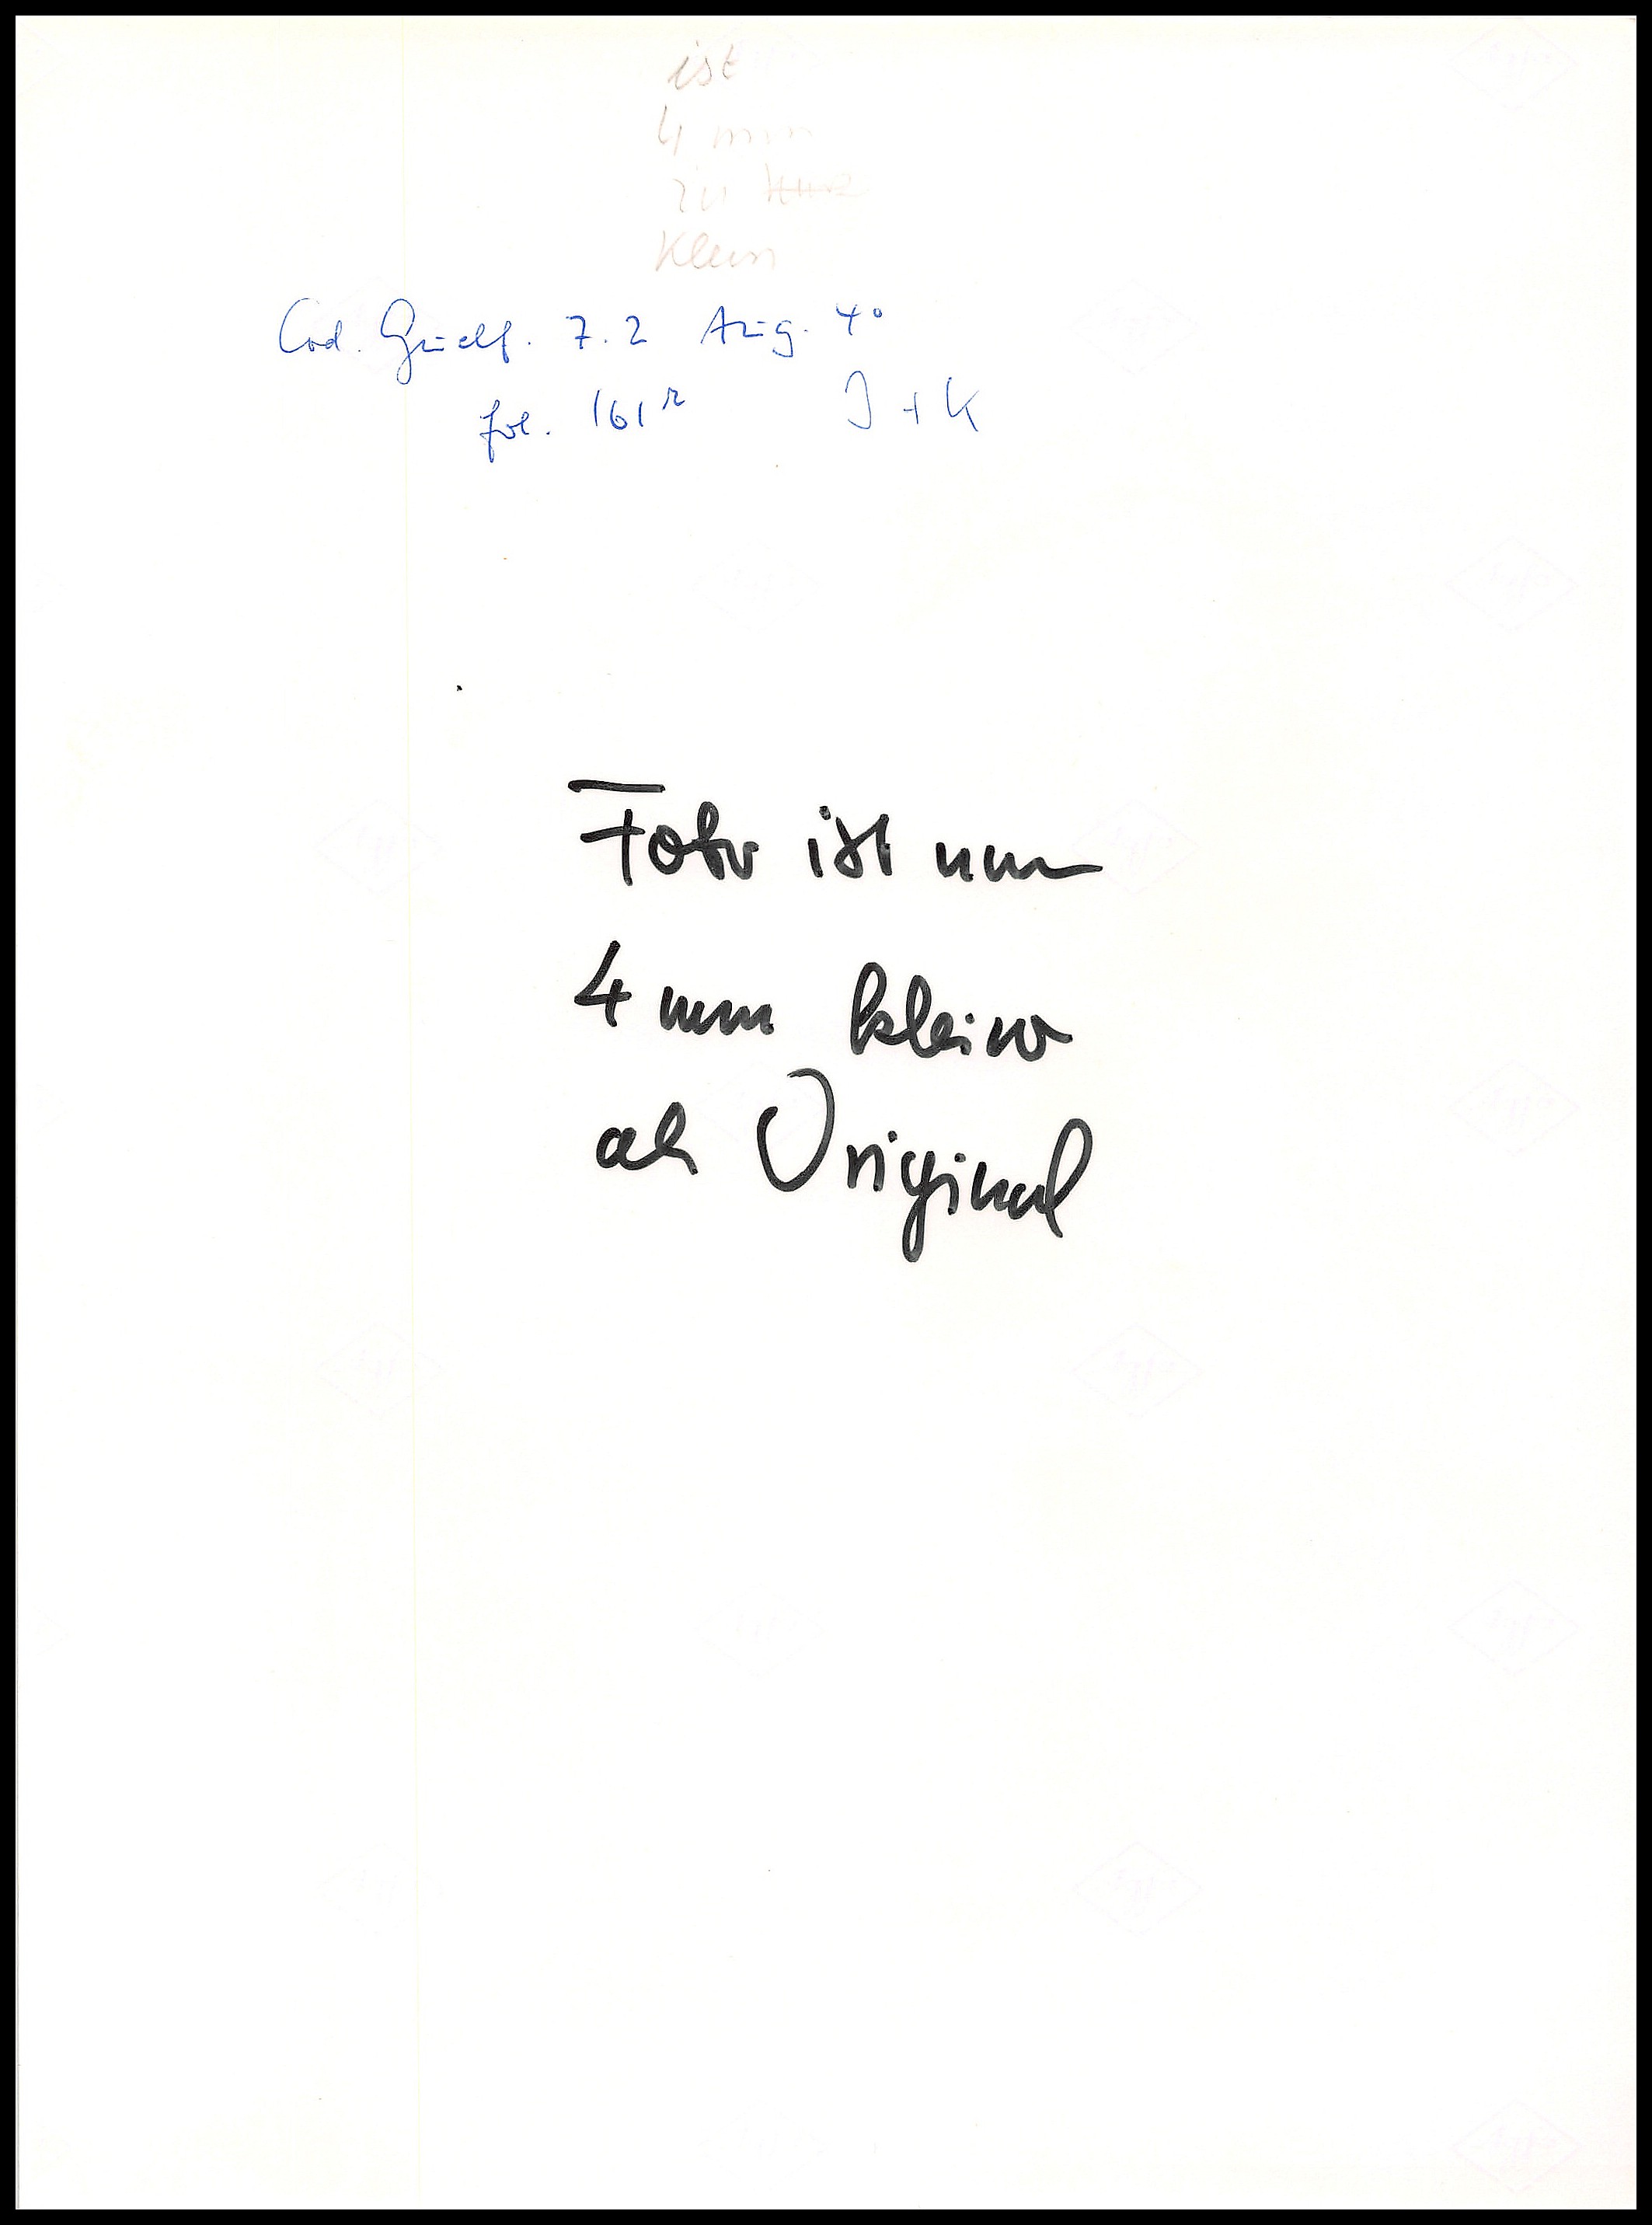 ist
4 mm
zu kurz
klein
Cod. Guelf. 7.2 Aug. 4°
fol. 161r J + K
Foto ist nur
4 mm kleiner
als Original